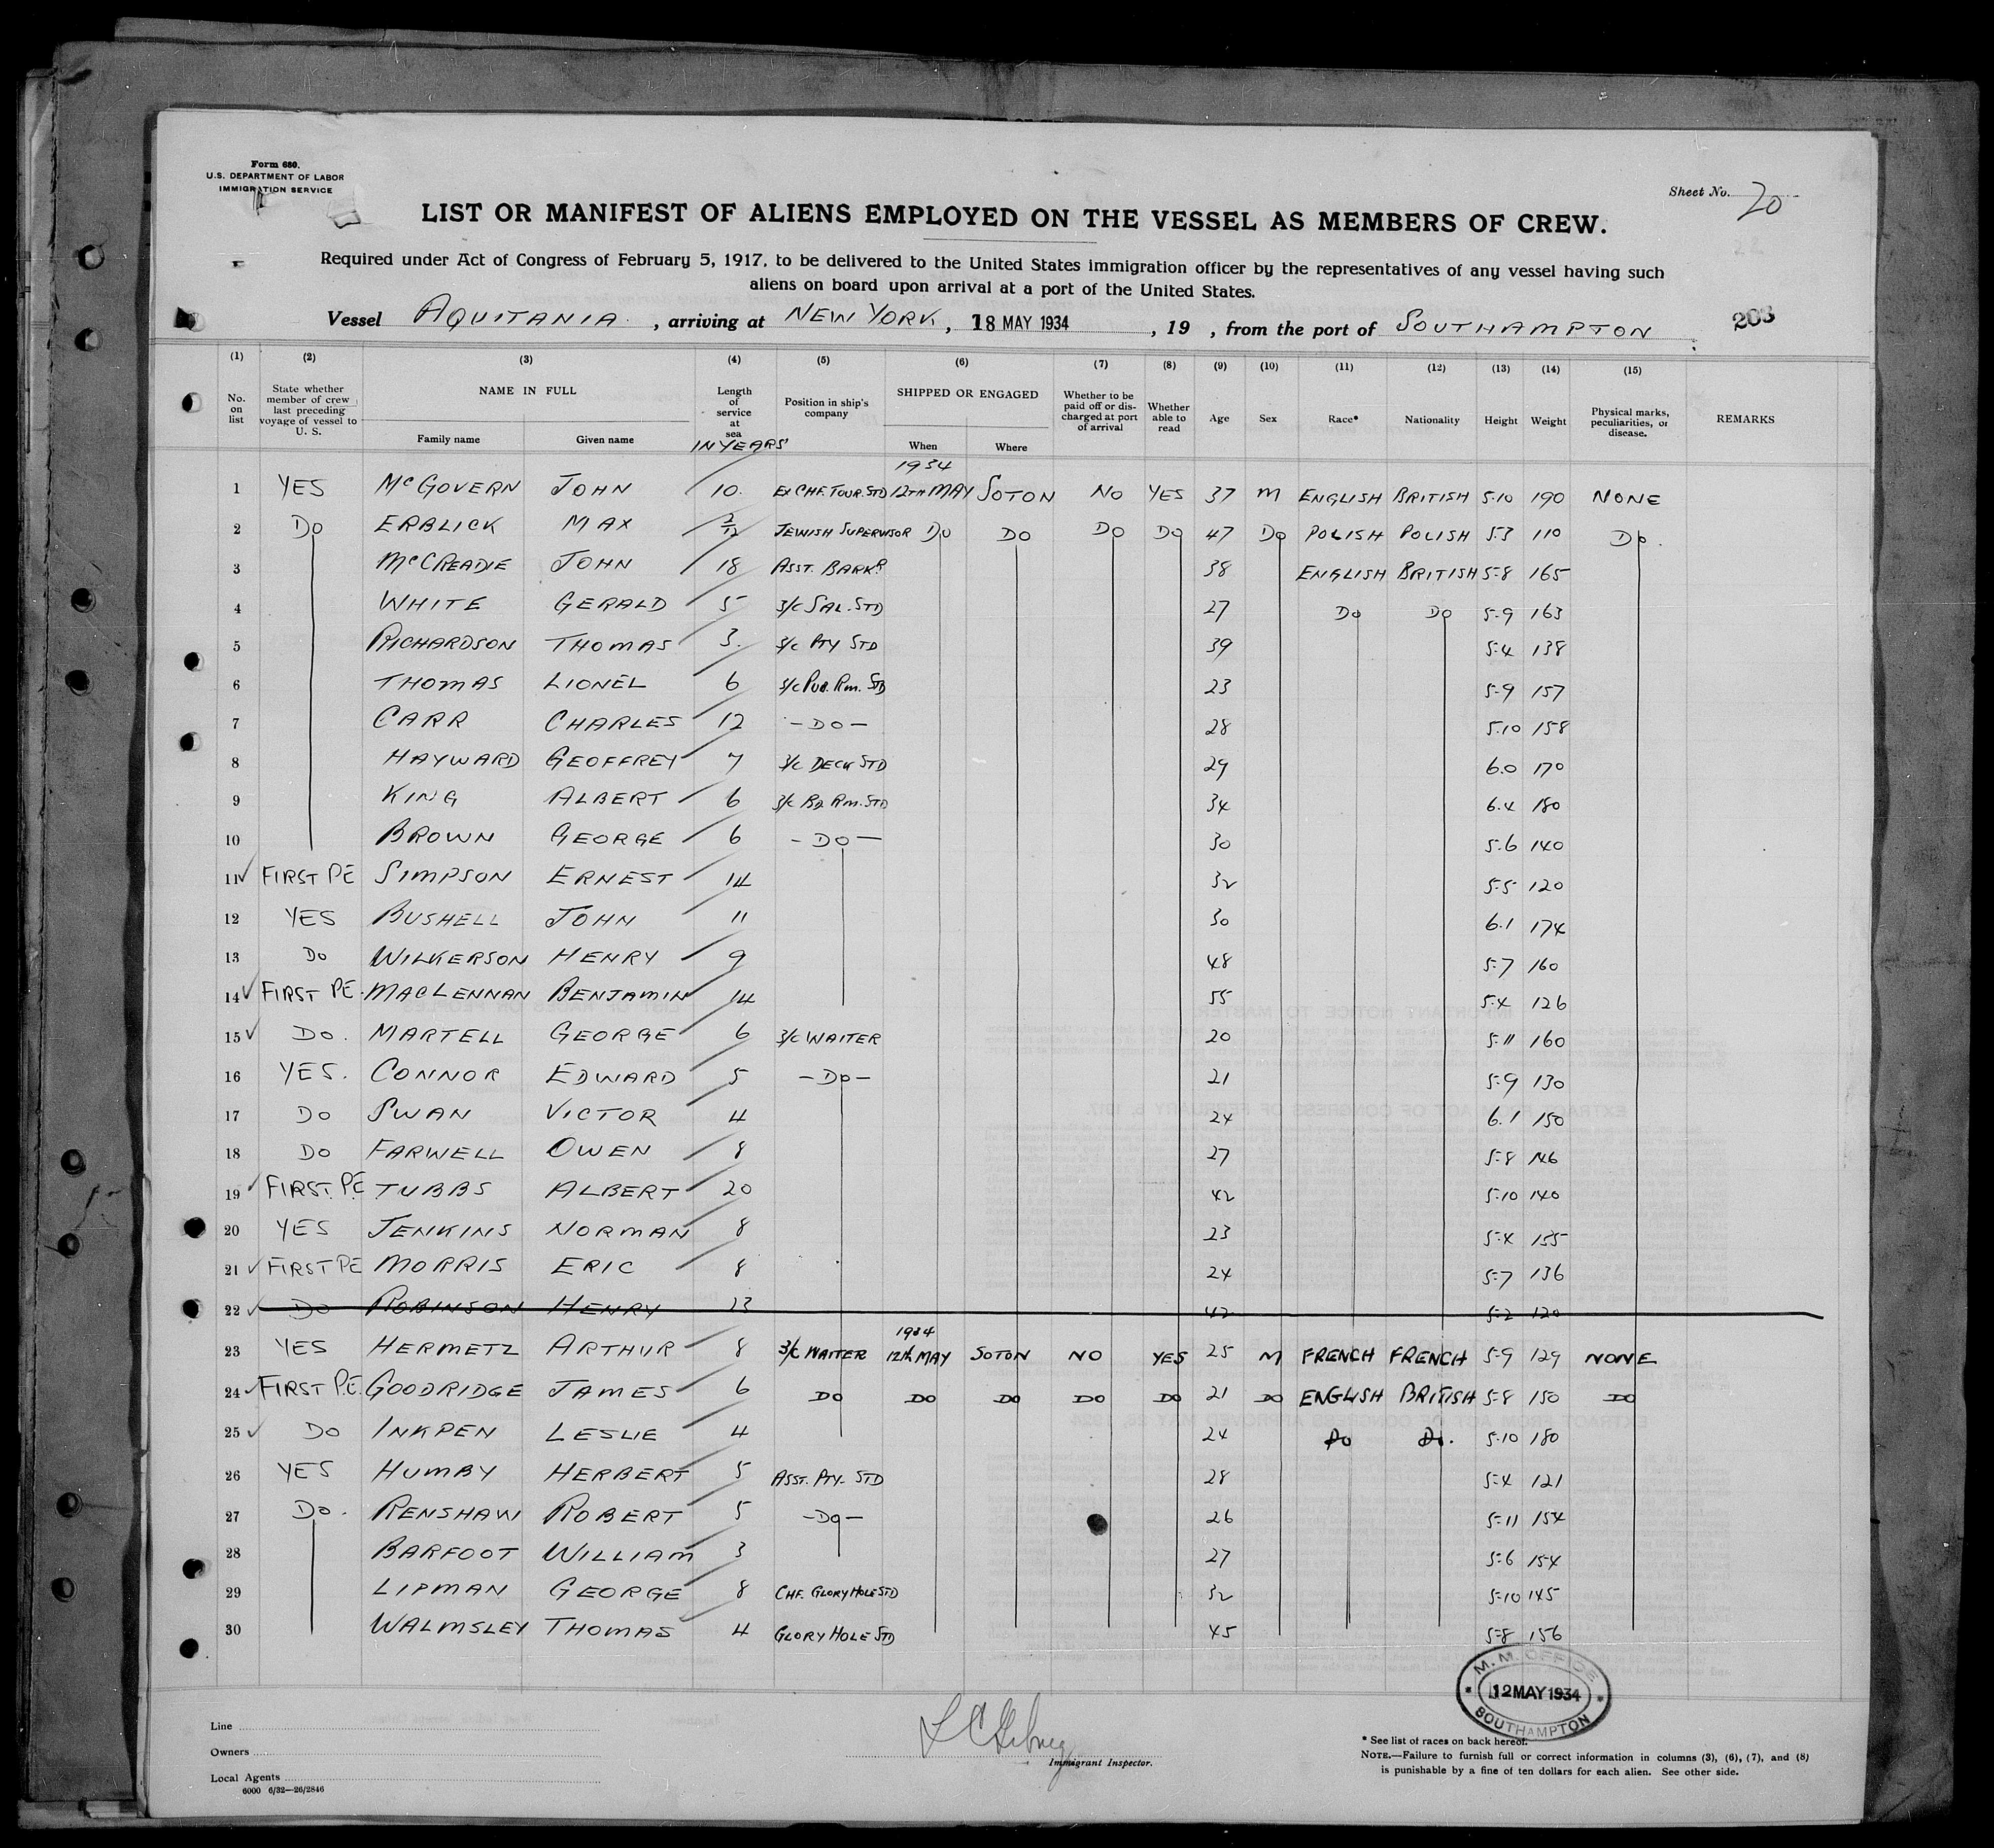 Form 680.
U.S. DEPARTMENT OF LABOR
IMMIGRATION SERVICE
Sheet No. 20
LIST OR MANIFEST OF ALIENS EMPLOYED ON THE VESSEL AS MEMBERS OF CREW.
Required under Act of Congress of February 5, 1917, to be delivered to the United States immigration officer by the representatives of any vessel having such
aliens on board upon arrival at a port of the United States.
Vessel AQUITANIA, arriving at NEW YORK, 18 MAY 1934, 19 , from the port of SOUTHAMPTON
203
(1) (2) (3) (4) (5) (6) (7) (8) (9) (10) (11) (12) (13) (14) (15)
No. on list State whether member of crew last preceding voyage of vessel to U. S. NAME IN FULL Family name Given name Length of service at sea IN YEARS Position in ship's company SHIPPED OR ENGAGED When Where Whether to be paid off or discharged at port of arrival Whether able to read Age Sex Race* Nationality Height Weight Physical marks, peculiarities, or disease. REMARKS
1934
1 YES McGOVERN JOHN 10. EX CHF. TOUR. STD 12TH MAY SOTON NO YES 37 M ENGLISH BRITISH 5.10 190 NONE
2 DO ERBLICK MAX 2/12 JEWISH SUPERVISOR DO DO DO DO 47 DO POLISH POLISH 5.3 110 DO.
3 McCREADIE JOHN 18 ASST. BARKR 38 ENGLISH BRITISH 5.8 165
4 WHITE GERALD 5 3/C SAL. STD 27 DO DO 5.9 163
5 RICHARDSON THOMAS 3. 3/C PTY STD 39 5.4 138
6 THOMAS LIONEL 6 3/C PUB. RM. STD 23 5.9 157
7 CARR CHARLES 12 -DO- 28 5.10 158
8 HAYWARD GEOFFREY 7 3/C DECK STD 29 6.0 170
9 KING ALBERT 6 3/C BD RM. STD 34 6.4 180
10 BROWN GEORGE 6 -DO- 30 5.6 140
11 FIRST PE SIMPSON ERNEST 14 32 5.5 120
12 YES BUSHELL JOHN 11 30 6.1 174
13 DO WILKERSON HENRY 9 48 5.7 160
14 FIRST PE. MACLENNAN BENJAMIN 14 55 5.4 126
15 DO. MARTELL GEORGE 6 3/C WAITER 20 5.11 160
16 YES. CONNOR EDWARD 5 -DO- 21 5.9 130
17 DO SWAN VICTOR 4 24 6.1 150
18 DO FARWELL OWEN 8 27 5.8 146
19 FIRST. P.E TUBBS ALBERT 20 42 5.10 140
20 YES JENKINS NORMAN 8 23 5.4 155
21 FIRST PE MORRIS ERIC 8 24 5.7 136
22 DO ROBINSON HENRY 13 42 5.2 120
1934
23 YES HERMETZ ARTHUR 8 3/C WAITER 12th MAY SOTON NO YES 25 M FRENCH FRENCH 5.9 129 NONE
24 FIRST P.E. GOODRIDGE JAMES 6 DO DO DO DO DO 21 DO ENGLISH BRITISH 5.8 150 DO
25 DO INKPEN LESLIE 4 24 DO DO. 5.10 180
26 YES HUMBY HERBERT 5 ASST. PTY. STD 28 5.4 121
27 DO. RENSHAW ROBERT 5 -DO- 26 5.11 154
28 BARFOOT WILLIAM 3 27 5.6 154
29 LIPMAN GEORGE 8 CHF. GLORY HOLE STD 32 5.10 145
30 WALMSLEY THOMAS 4 GLORY HOLE STD 45 5.8 156
M. M. OFFICE
12 MAY 1934
SOUTHAMPTON
Line
Owners
Local Agents
6000 6/32—26/2846
Immigrant Inspector.
* See list of races on back hereof.
NOTE.—Failure to furnish full or correct information in columns (3), (6), (7), and (8)
is punishable by a fine of ten dollars for each alien. See other side.